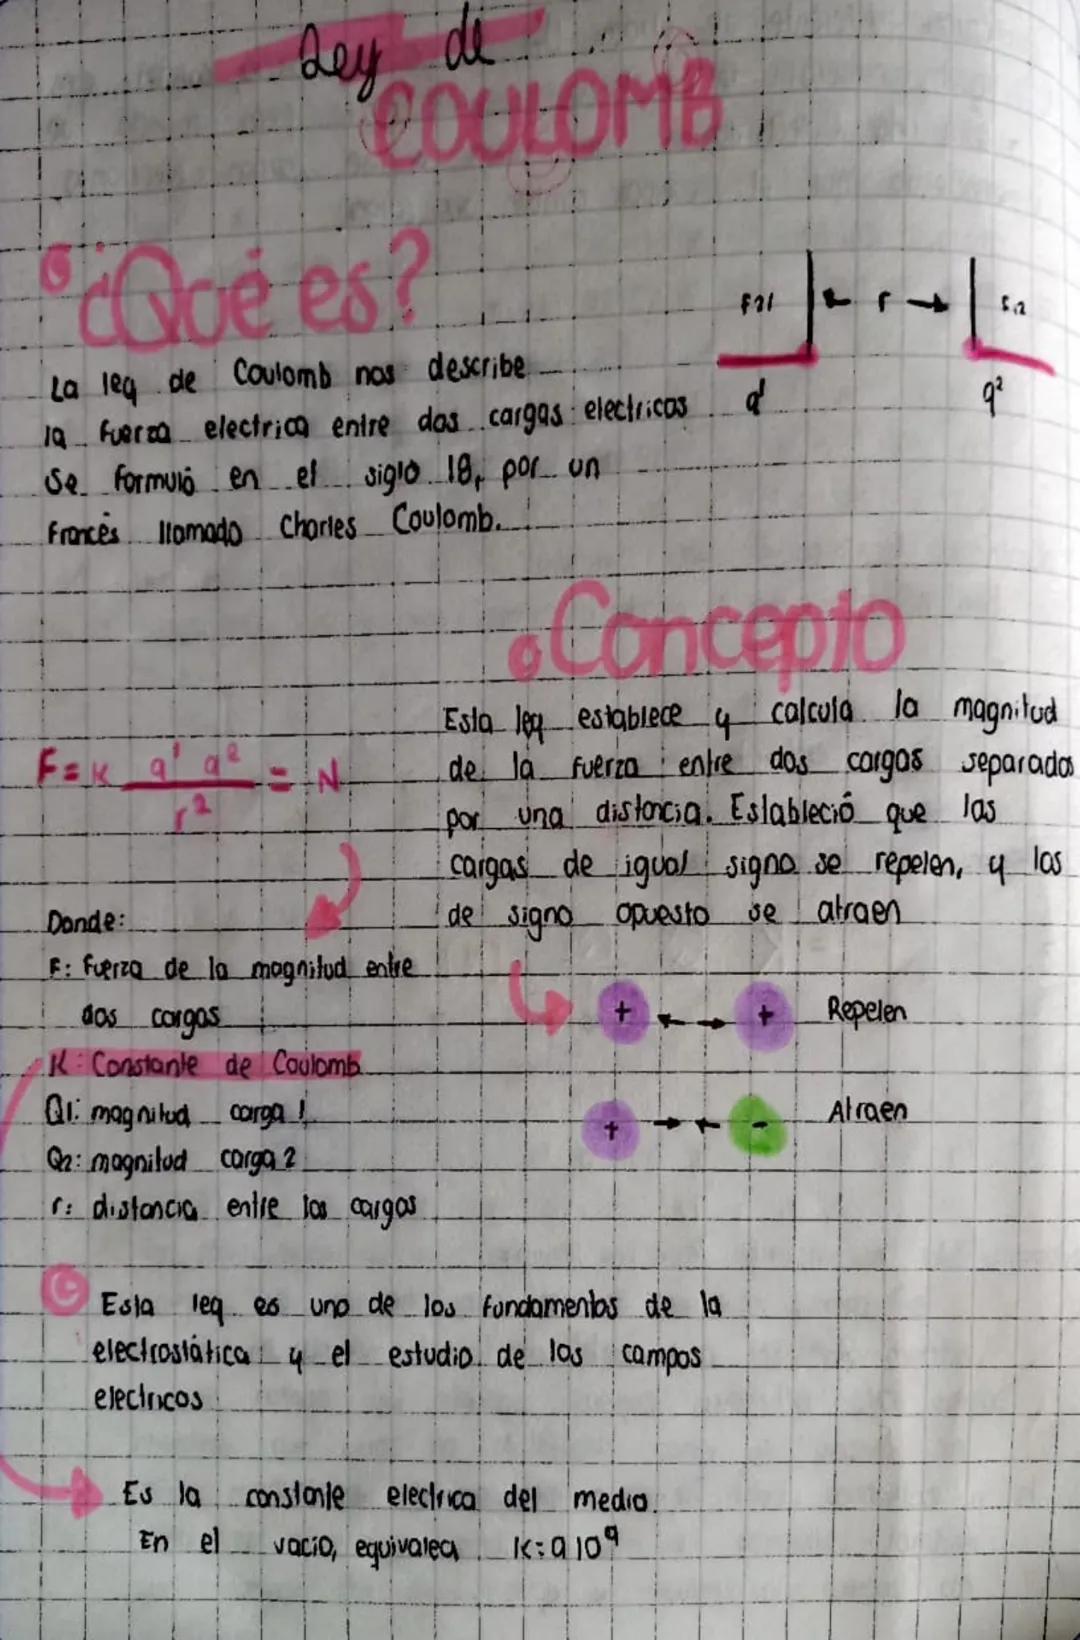 Ley de
COULOMB
¿Qué es?
La ley de Coulomb nos describe
la fuerza electrica entre dos cargas electricas
Se formuló en el siglo 18, por un
Francés llamado Charles Coulomb.
F21 r F12
q1 q2
Concepto
Esta ley establece y calcula la magnitud
de la fuerza entre dos cargas separadas
por una distancia. Estableció que las
cargas de igual signo se repelen, y las
de signo opuesto se atraen
F = K q1 q2 / r2 = N
Donde:
F: fuerza de la magnitud entre
dos cargas
K: Constante de Coulomb
Q1: magnitud carga 1
Q2: magnitud carga 2
r: distancia entre las cargas
+ + Repelen
+ - Atraen
Esta ley es uno de los fundamentos de la
electrostática y el estudio de los campos
electricos
Es la constante electrica del medio.
En el vacio, equivalea K: 9 10⁹